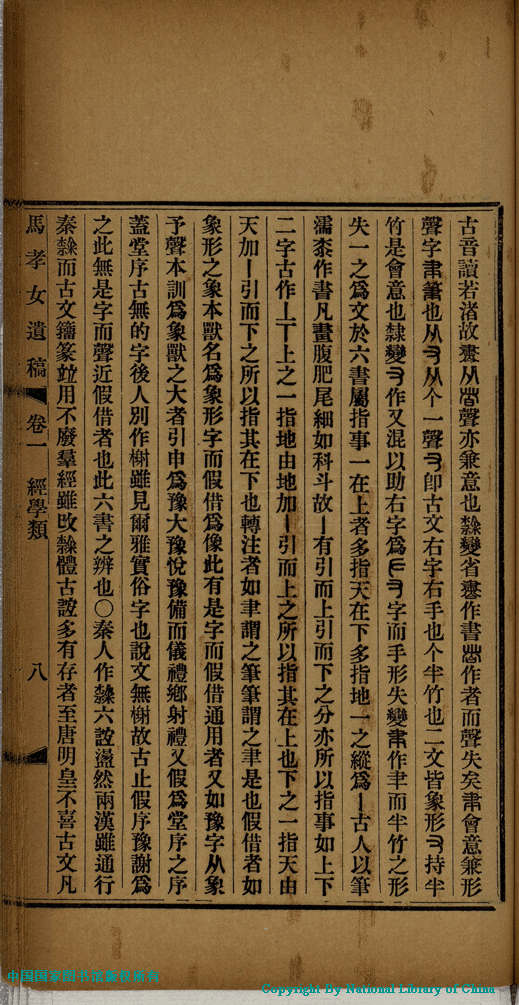 古音讀若渚故𦘠从㫺聲亦兼意也隸變省𦘠作書㫺作者而聲失矣𦘒會意兼形
聲字𦘒筆也从又从个一聲又卽古文右字右手也个半竹也二文皆象形又持半
竹是會意也隸變又作又混以助右字爲又字而手形失變𦘒作聿而半竹之形
失一之爲文於六書屬指事一在上者多指天在下多指地一之縱爲丨古人以筆
濡桼作書凡畫腹肥尾細如科斗故丨有引而上引而下之分亦所以指事如上下
二字古作丄丅上之一指地由地加丨引而上之所以指其在上也下之一指天由
天加丨引而下之所以指其在下也轉注者如聿謂之筆筆謂之聿是也假借者如
象形之象本獸名爲象形字而假借爲像此有是字而假借通用者又如豫字从象
予聲本訓爲象獸之大者引申爲豫大豫悅豫備而儀禮鄉射禮又假爲堂序之序
蓋堂序古無的字後人別作榭雖見爾雅實俗字也說文無榭故古止假序豫謝爲
之此無是字而聲近假借者也此六書之辨也〇秦人作隸六諡濫然兩漢雖通行
秦隸而古文籒篆竝用不廢羣經雖改隸體古諡多有存者至唐明皇不喜古文凡
馬孝女遺稿 卷一 經學類 八
中国国家图书馆版权所有
Copyright By National Library of China